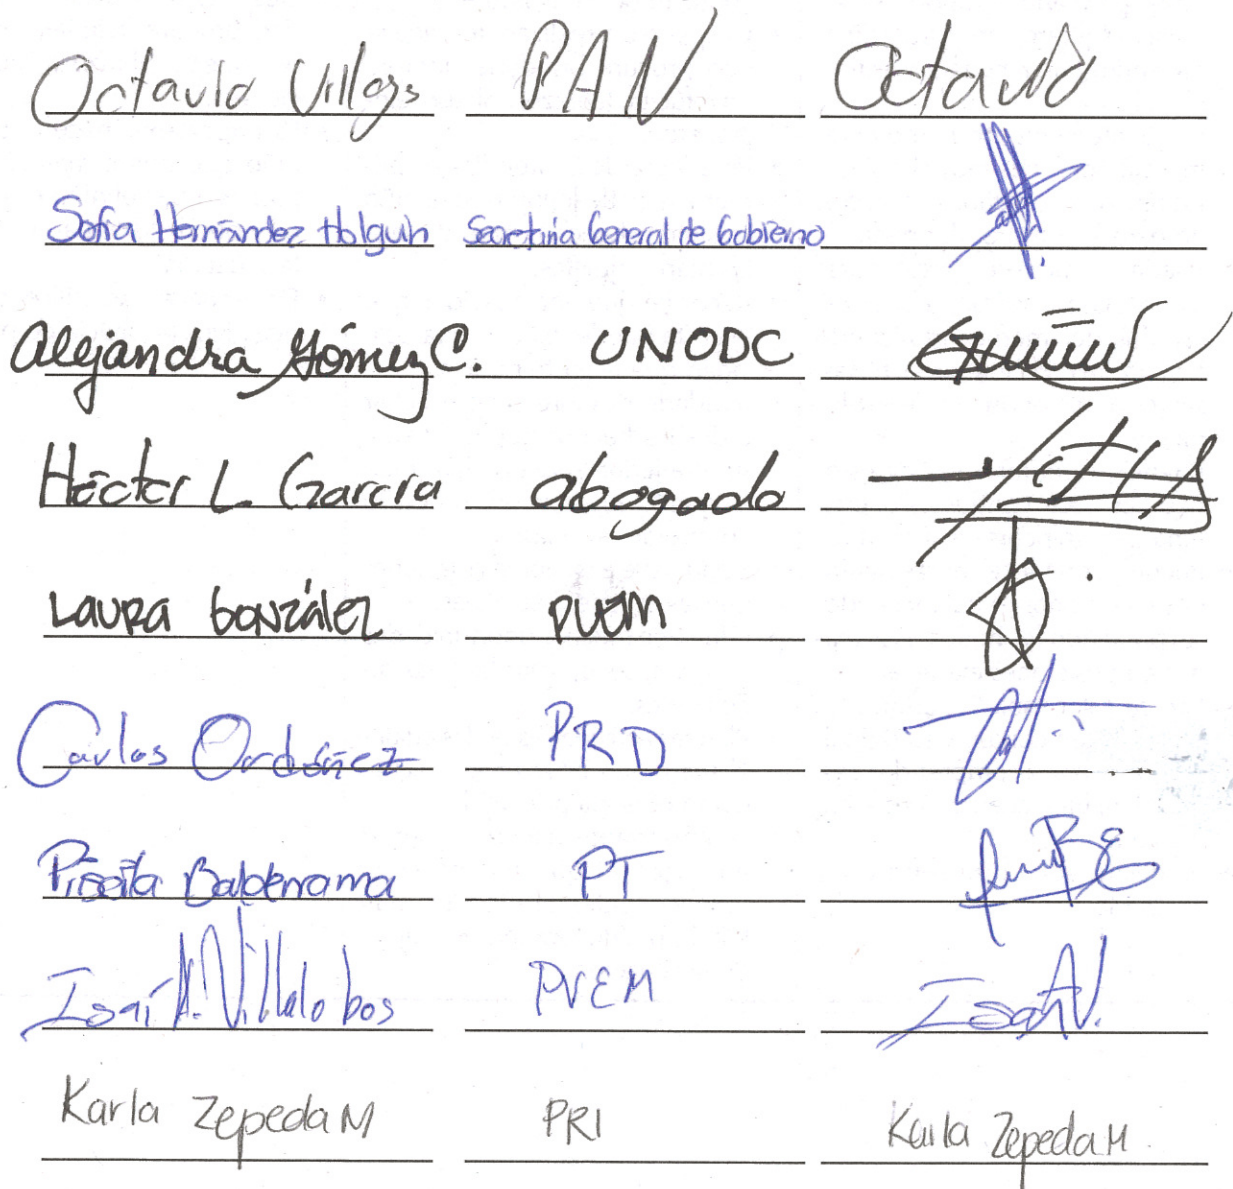 Octavio Villegs PAN Octavio
Sofía Hernández Holguín Secretaría General de Gobierno
Alejandra Gómez C. UNODC
Héctor L. García abogado
Laura González PVEM
Carlos Ordóñez PRD
Priscila Balderrama PT
Isaí A. Villalobos PVEM Isaí A V.
Karla Zepeda M PRI Karla Zepeda M